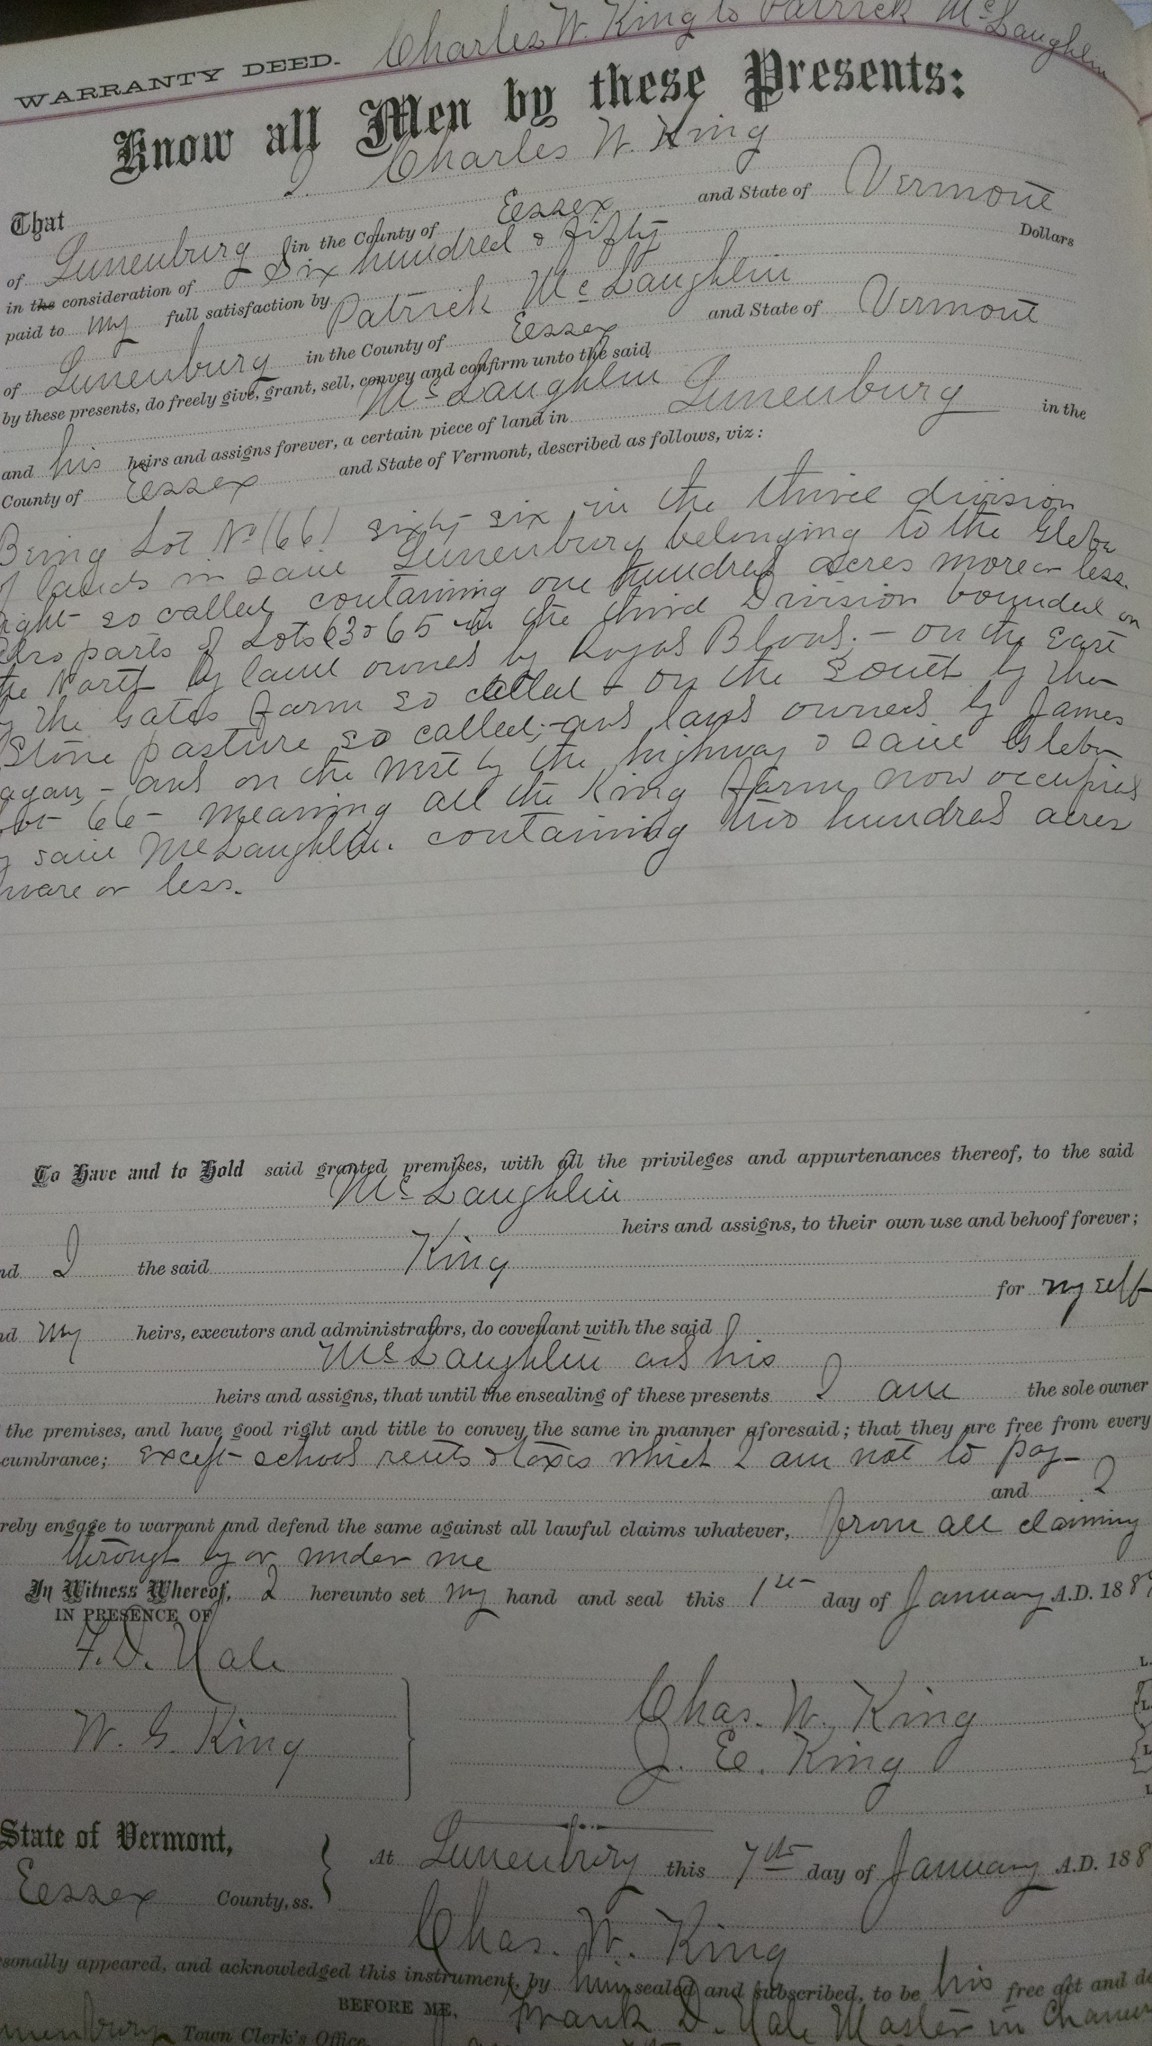 WARRANTY DEED. Charles W. King to Patrick McLaughlin
Know all Men by these Presents:
That I Charles W. King
of Lunenburg in the County of Essex and State of Vermont
in the consideration of Six hundred & fifty Dollars
paid to my full satisfaction by Patrick McLaughlin
of Lunenburg in the County of Essex and State of Vermont
by these presents, do freely give, grant, sell, convey and confirm unto the said
McLaughlin
and his heirs and assigns forever, a certain piece of land in Lunenburg in the
County of Essex and State of Vermont, described as follows, viz:
Being Lot No (66) sixty six in the third division
of lands in said Lunenburg belonging to the Glebe
right so called containing one hundred acres more or less.
Also parts of Lots 63 & 65 in the third Division bounded on
the North by land owned by - on the East
by the Gates farm so called & on the South by the
Stone pasture so called, and land owned by James
agan, - and on the West by the highway & said Glebe
lot 66 - meaning all the King farm now occupied
by said McLaughlin. containing two hundred acres
more or less.
To Have and to Hold said granted premises, with all the privileges and appurtenances thereof, to the said
McLaughlin
heirs and assigns, to their own use and behoof forever;
nd I the said King
for myself
nd my heirs, executors and administrators, do covenant with the said
McLaughlin and his
heirs and assigns, that until the ensealing of these presents I am the sole owner
the premises, and have good right and title to convey the same in manner aforesaid; that they are free from every
cumbrance; except school rents & taxes which I am not to pay -
and I
reby engage to warrant and defend the same against all lawful claims whatever, from all claiming
through by or under me
In Witness Whereof, I hereunto set my hand and seal this 1st day of January A.D. 188
IN PRESENCE OF
F. D. Hale
W. G. King
Chas. W. King
J. E. King
State of Vermont,
Essex County, ss.
At Lunenburg this 7th day of January A.D. 188
Chas. W. King
rsonally appeared, and acknowledged this instrument, by him sealed and subscribed, to be his free act and de
BEFORE ME, Frank D. Hale Master in Chancer
unenburg Town Clerk's Office